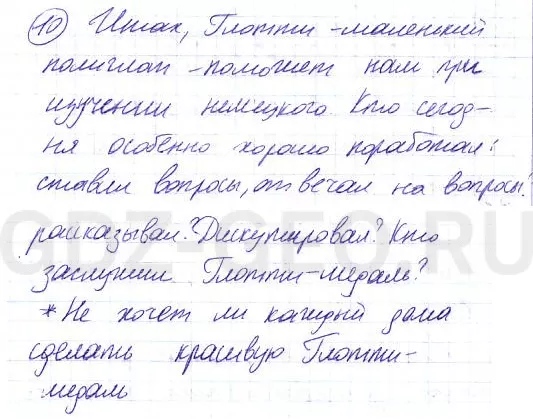 10 Итак, Глотти - маленький
полиглот - поможет нам при
изучении немецкого. Кто сегод-
ня особенно хорошо поработал:
ставил вопросы, отвечал на вопросы?
рассказывал? Дискутировал? Кто
заслужил Глотти-медаль?
* Не хочет ли каждый дома
сделать красивую Глотти-
медаль